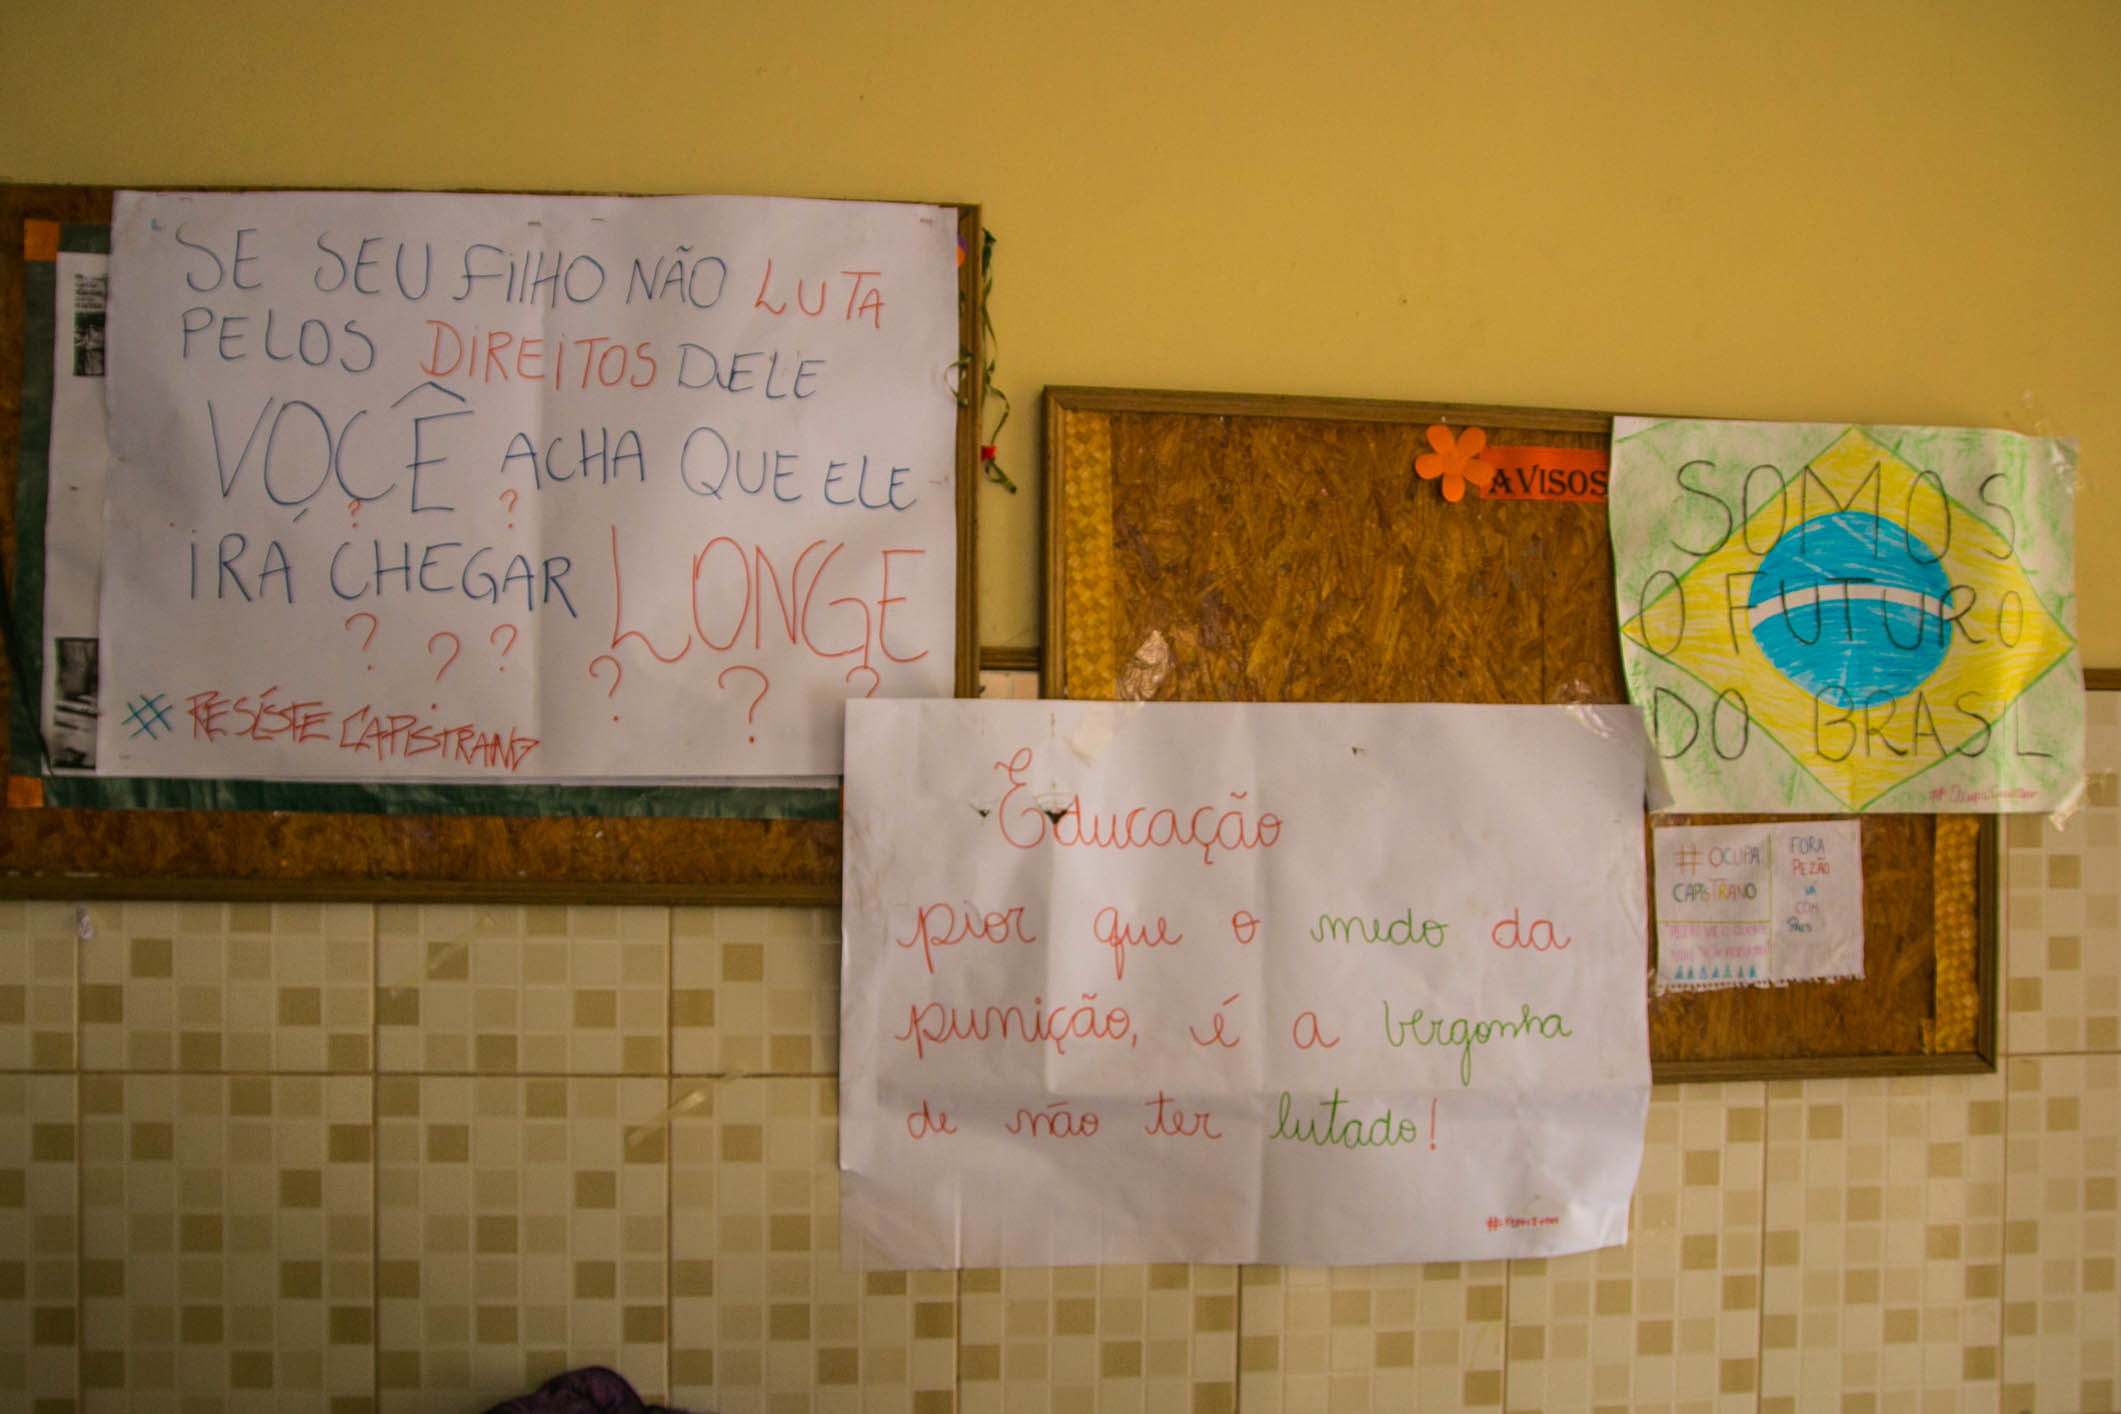 SE SEU FILHO NÃO LUTA
PELOS DIREITOS DELE
VOCÊ ACHA QUE ELE
? ?
IRÁ CHEGAR LONGE
? ? ? ? ? ?
# RESISTE CAPISTRANO
AVISOS
SOMOS
O FUTURO
DO BRASIL
Educação
pior que o medo da
punição, é a vergonha
de não ter lutado!
# OCUPA
CAPISTRANO
FORA
PEZÃO
VÁ
COM